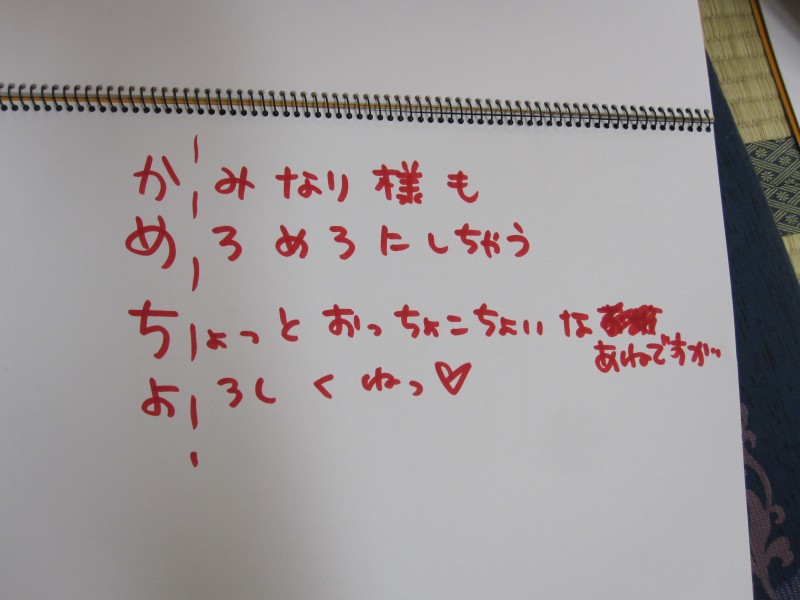 かみなり様も
めろめろにしちゃう
ちょっとおっちょこちょいな
あねですが…
よろしくねっ♡